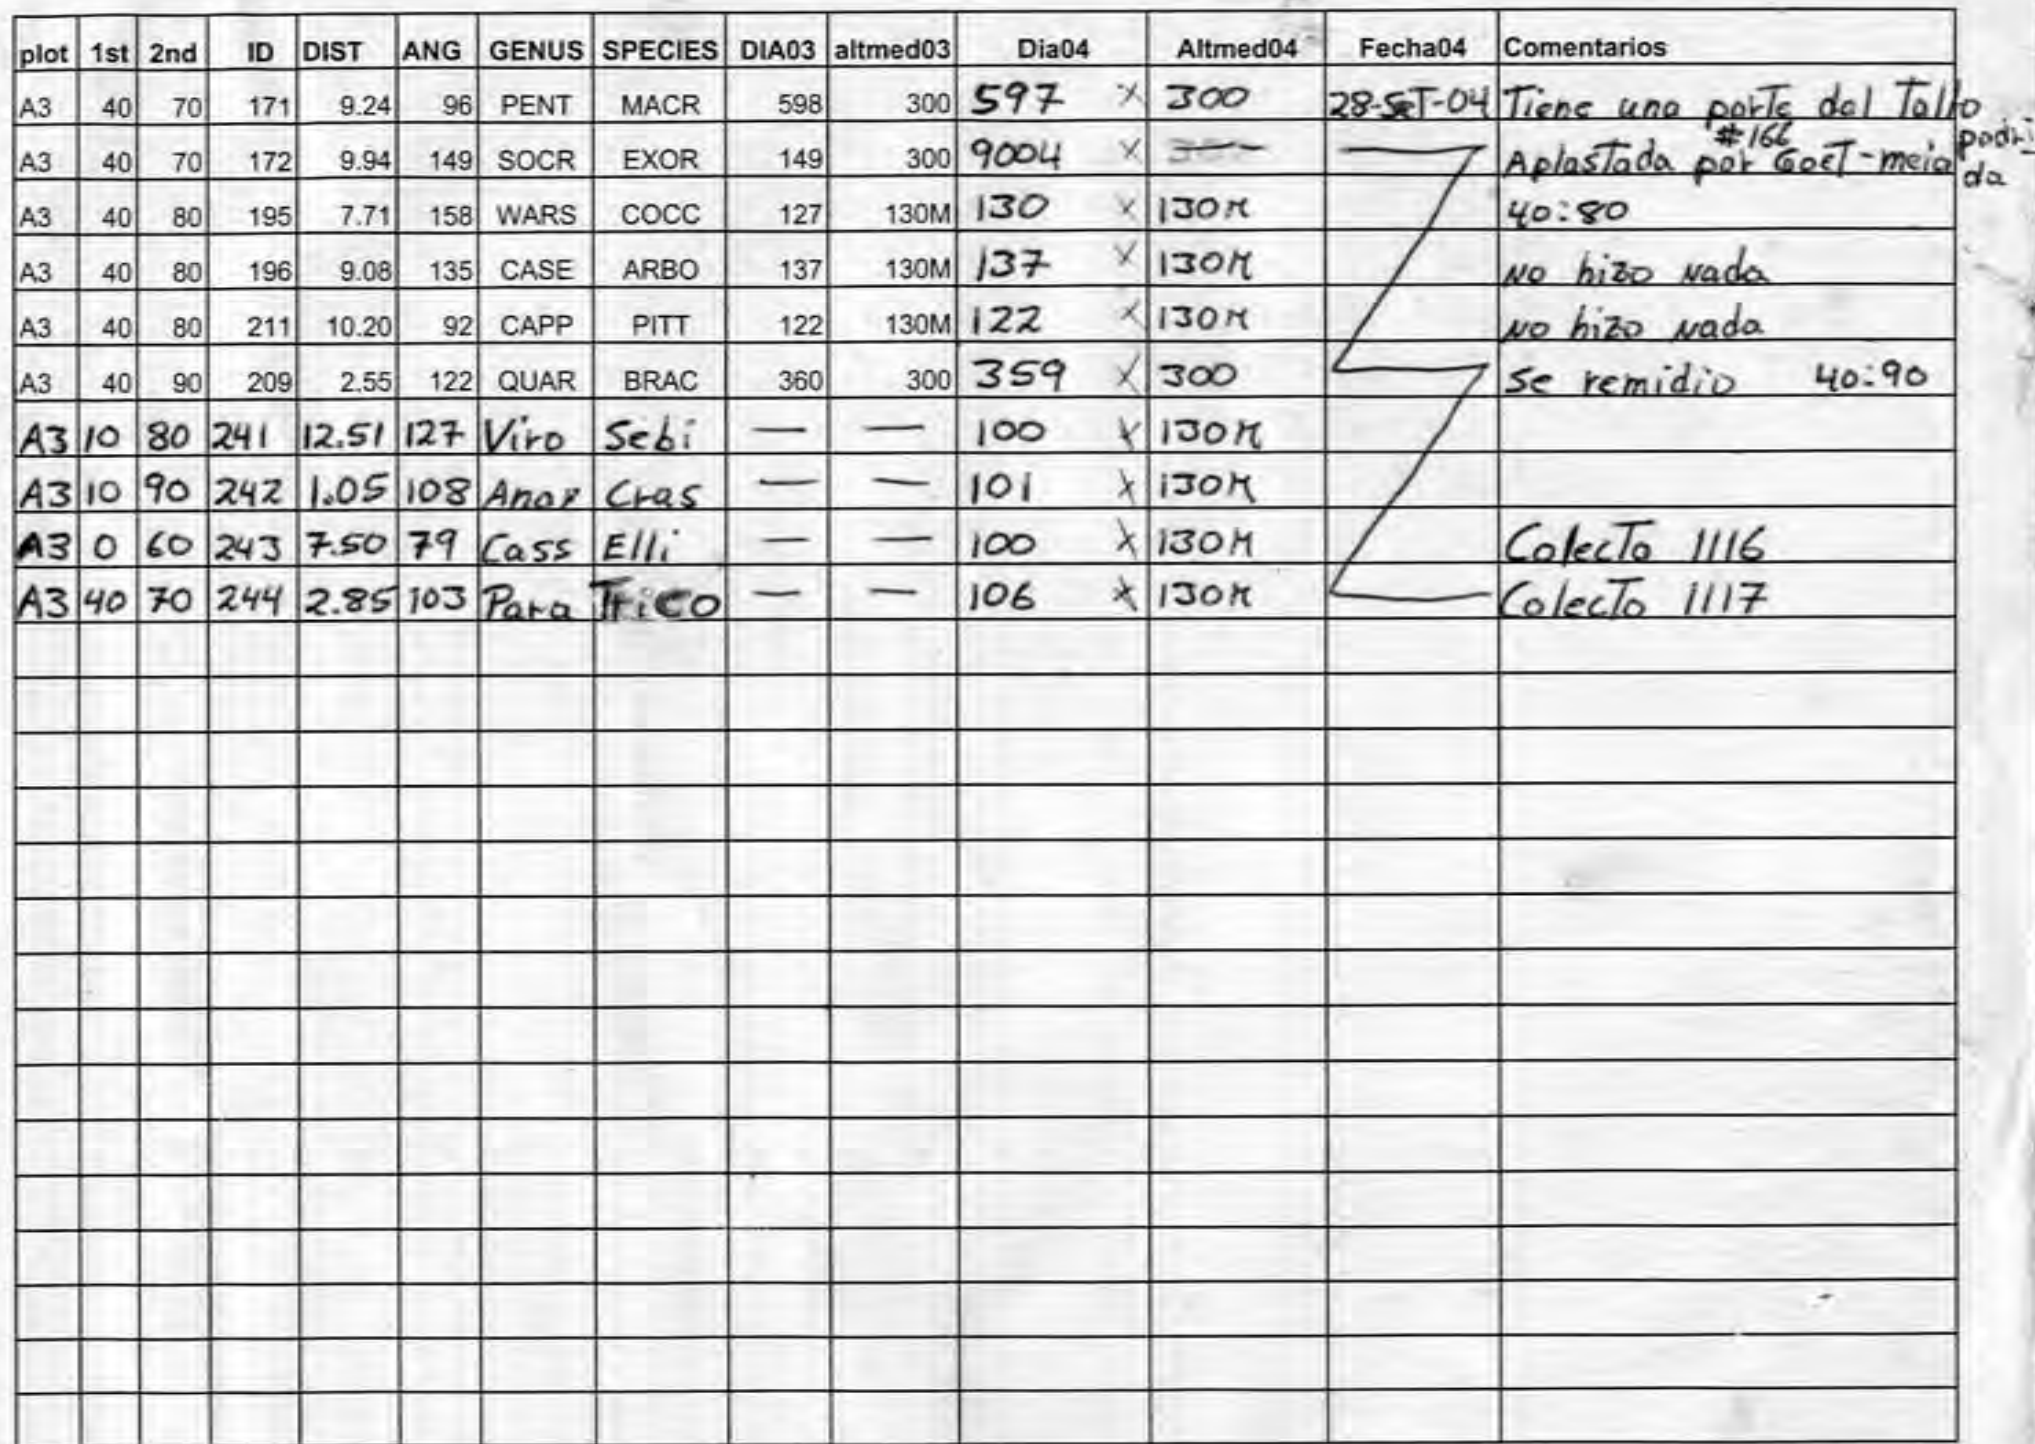 plot 1st 2nd ID DIST ANG GENUS SPECIES DIA03 altmed03 Dia04 Altmed04 Fecha04 Comentarios
A3 40 70 171 9.24 96 PENT MACR 598 300 597 x 300 28-SeT-04 Tiene una parte del Tallo podrida
A3 40 70 172 9.94 149 SOCR EXOR 149 300 9004 x — — Aplastada por #166 Goet-meia
A3 40 80 195 7.71 158 WARS COCC 127 130M 130 x 130M 40:80
A3 40 80 196 9.08 135 CASE ARBO 137 130M 137 x 130M No hizo nada
A3 40 80 211 10.20 92 CAPP PITT 122 130M 122 x 130M No hizo nada
A3 40 90 209 2.55 122 QUAR BRAC 360 300 359 x 300 Se remidio 40:90
A3 10 80 241 12.51 127 Viro Sebi — — 100 x 130M
A3 10 90 242 1.05 108 Anax Cras — — 101 x 130M
A3 0 60 243 7.50 79 Cass Elli — — 100 x 130M Colecto 1116
A3 40 70 244 2.85 103 Para Trico — — 106 x 130M Colecto 1117